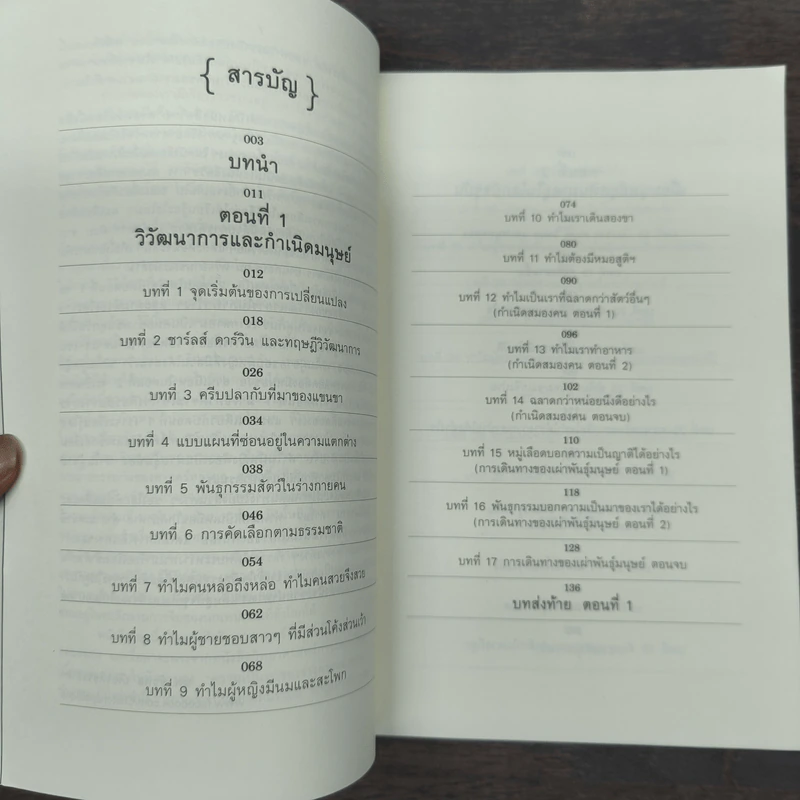 { สารบัญ }
003
บทนำ
011
ตอนที่ 1
วิวัฒนาการและกำเนิดมนุษย์
012
บทที่ 1 จุดเริ่มต้นของการเปลี่ยนแปลง
018
บทที่ 2 ชาร์ลส์ ดาร์วิน และทฤษฎีวิวัฒนาการ
026
บทที่ 3 ครีบปลากับที่มาของแขนขา
034
บทที่ 4 แบบแผนที่ซ่อนอยู่ในความแตกต่าง
038
บทที่ 5 พันธุกรรมสัตว์ในร่างกายคน
046
บทที่ 6 การคัดเลือกตามธรรมชาติ
054
บทที่ 7 ทำไมคนหล่อถึงหล่อ ทำไมคนสวยจึงสวย
062
บทที่ 8 ทำไมผู้ชายชอบสาวๆ ที่มีส่วนโค้งส่วนเว้า
068
บทที่ 9 ทำไมผู้หญิงมีนมและสะโพก
074
บทที่ 10 ทำไมเราเดินสองขา
080
บทที่ 11 ทำไมต้องมีหมอสูติฯ
090
บทที่ 12 ทำไมเป็นเราที่ฉลาดกว่าสัตว์อื่นๆ
(กำเนิดสมองคน ตอนที่ 1)
096
บทที่ 13 ทำไมเราทำอาหาร
(กำเนิดสมองคน ตอนที่ 2)
102
บทที่ 14 ฉลาดกว่าหน่อยนึงดีอย่างไร
(กำเนิดสมองคน ตอนจบ)
110
บทที่ 15 หมู่เลือดบอกความเป็นญาติได้อย่างไร
(การเดินทางของเผ่าพันธุ์มนุษย์ ตอนที่ 1)
118
บทที่ 16 พันธุกรรมบอกความเป็นมาของเราได้อย่างไร
(การเดินทางของเผ่าพันธุ์มนุษย์ ตอนที่ 2)
128
บทที่ 17 การเดินทางของเผ่าพันธุ์มนุษย์ ตอนจบ
136
บทส่งท้าย ตอนที่ 1